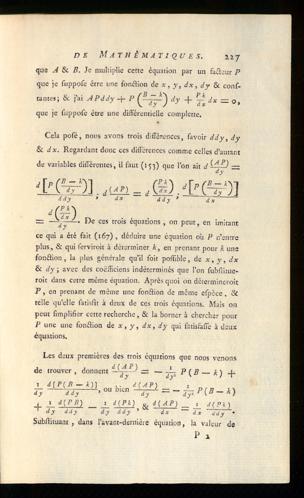 DE MATHÉMATIQUES. 227
que A & B. Je multiplie cette équation par un facteur P
que je suppose être une fonction de x, y, dx, dy & conf-
tantes; & j'ai APddy + P (B — k / dy) dy + Pk/dx dx = 0,
que je suppose être une différentielle complette.
Cela posé, nous avons trois différences, savoir ddy, dy
& dx. Regardant donc ces différences comme celles d'autant
de variables différentes, il faut (153) que l'on ait d (AP) / dy =
d [P (B — k / dy)] / ddy ; d (AP) / dx = d (Pk / dx) / ddy ; d [P (B — k / dy)] / dx
= d (Pk / dx) / dy. De ces trois équations, on peut, en imitant
ce qui a été fait (167), déduire une équation où P n'entre
plus, & qui serviroit à déterminer k, en prenant pour k une
fonction, la plus générale qu'il soit possible, de x, y, dx
& dy; avec des coëfficiens indéterminés que l'on substitue-
roit dans cette même équation. Après quoi on détermineroit
P, en prenant de même une fonction de même espèce, &
telle qu'elle satisfît à deux de ces trois équations. Mais on
peut simplifier cette recherche, & la borner à chercher pour
P une une fonction de x, y, dx, dy qui satisfasse à deux
équations.
Les deux premières des trois équations que nous venons
de trouver, donnent d(AP)/dy = — 1/dy² P (B — k) +
1/dy d[P(B — k)]/ddy, ou bien d(AP)/dy = — 1/dy² P (B — k)
+ 1/dy d(PB)/ddy — 1/dy d(Pk)/ddy, & d(AP)/dx = 1/dx d(Pk)/ddy.
Substituant, dans l'avant-dernière équation, la valeur de
P 2